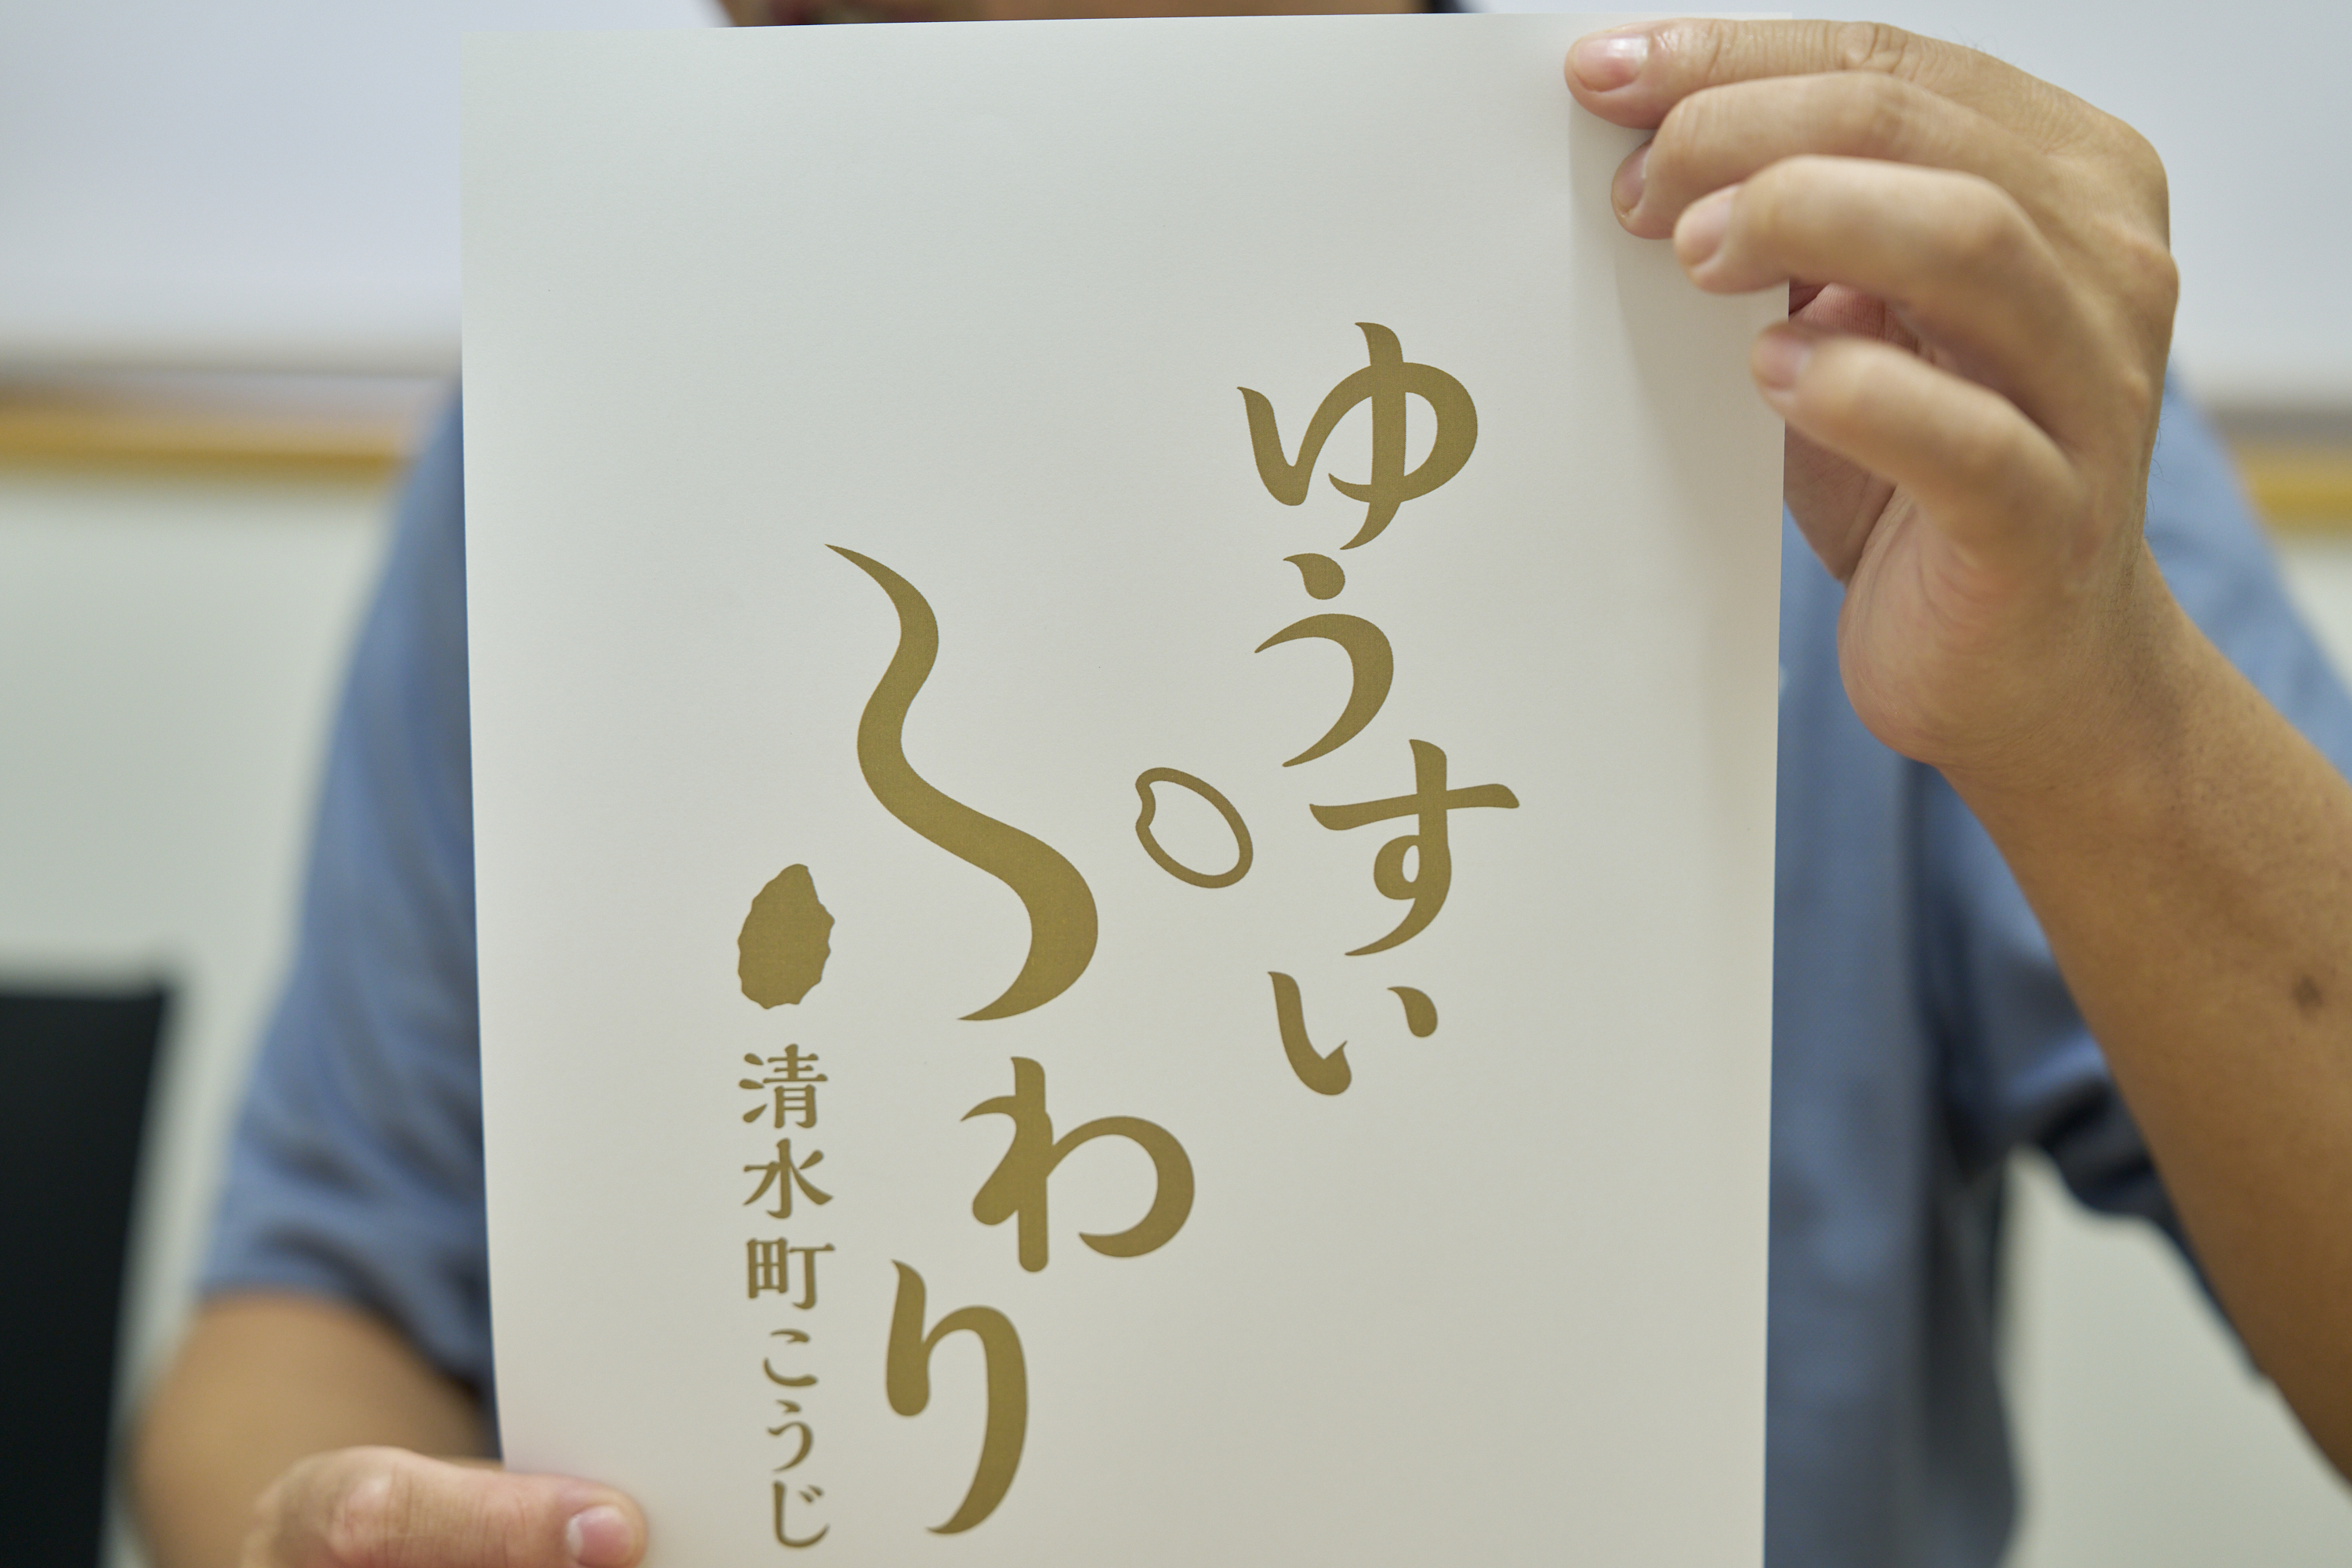 ゆうすい
ふわり
清水町こうじ